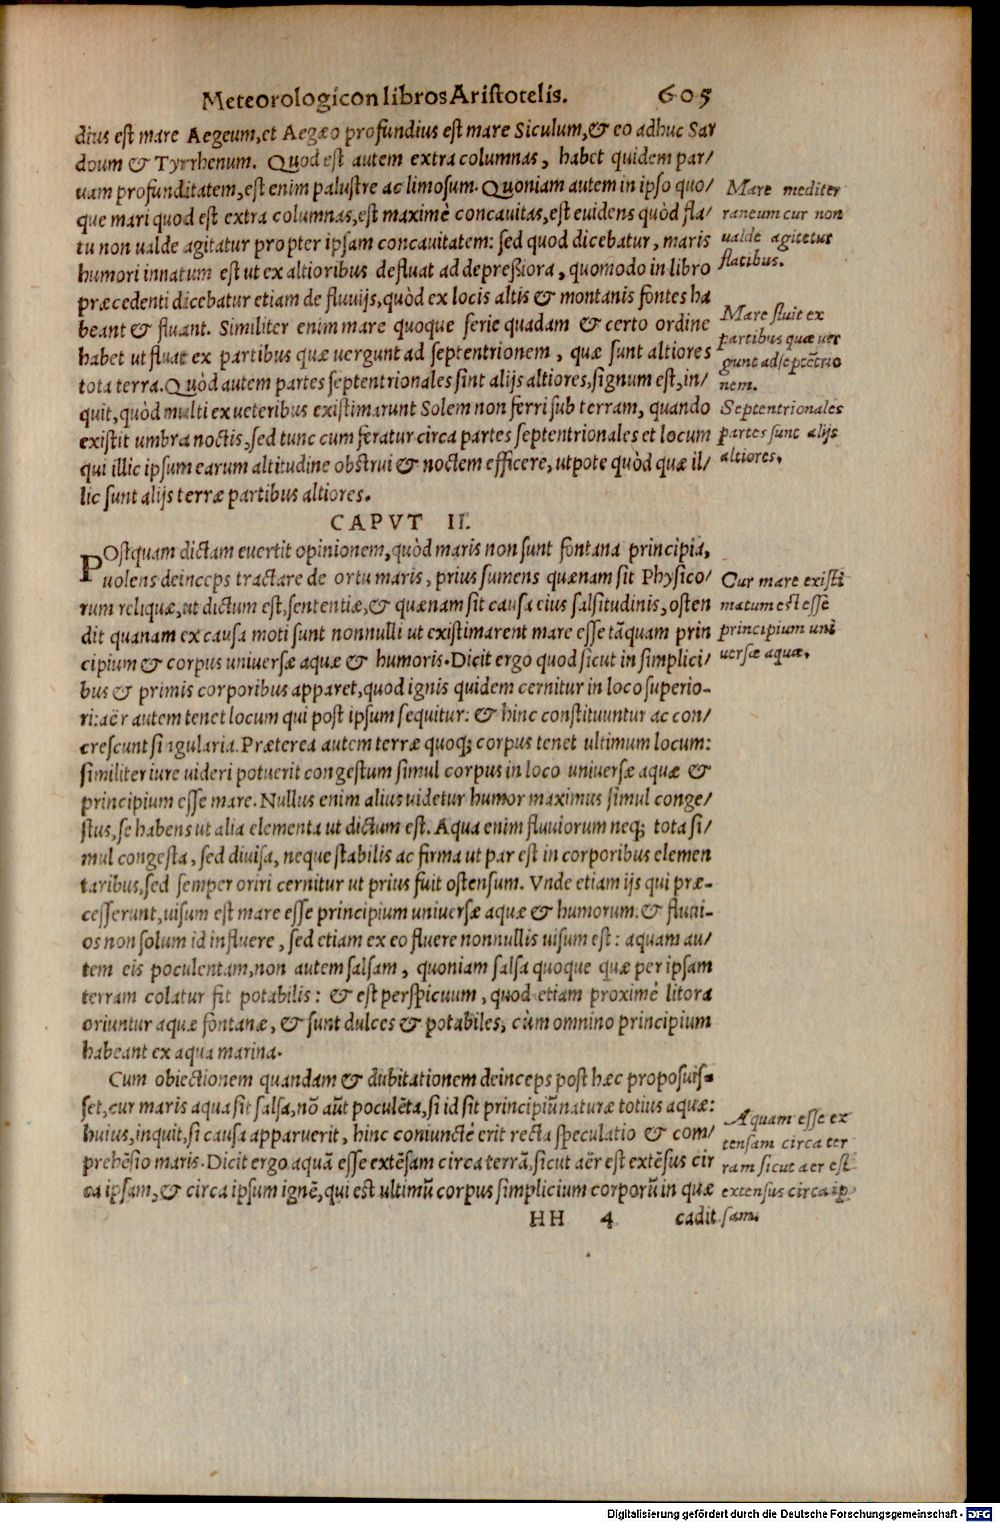 Meteorologicon libros Aristotelis. 605
dius est mare Aegeum, et Aegæo profundius est mare Siculum, & eo adhuc Sar
doum & Tyrrhenum. Quod est autem extra columnas, habet quidem par/
uam profunditatem, est enim palustre ac limosum. Quoniam autem in ipso quo/
que mari quod est extra columnas, est maximè concauitas, est euidens quòd fla/
tu non ualde agitatur propter ipsam concauitatem: sed quod dicebatur, maris
humori innatum est ut ex altioribus defluat ad depreßiora, quomodo in libro
præcedenti dicebatur etiam de fluuijs, quòd ex locis altis & montanis fontes ha
beant & fluant. Similiter enim mare quoque serie quadam & certo ordine
habet ut fluat ex partibus quæ uergunt ad septentrionem, quæ sunt altiores
tota terra. Quòd autem partes septentrionales sint alijs altiores, signum est, in/
quit, quòd multi ex ueteribus existimarunt Solem non ferri sub terram, quando
existit umbra noctis, sed tunc cum feratur circa partes septentrionales et locum
qui illic ipsum earum altitudine obstrui & noctem efficere, utpote quòd quæ il/
lic sunt alijs terræ partibus altiores.
Mare mediter
raneum cur non
ualde agitetur
flatibus.
Mare fluit ex
partibus quæ uer
gunt ad septẽtrio
nem.
Septentrionales
partes sunt alijs
altiores.
CAPVT II.
POstquam dictam euertit opinionem, quòd maris non sunt fontana principia,
uolens deinceps tractare de ortu maris, prius sumens quænam sit Physico/
rum reliquæ, ut dictum est, sententiæ, & quænam sit causa eius salsitudinis, osten
dit quanam ex causa moti sunt nonnulli ut existimarent mare esse tãquam prin
cipium & corpus uniuersæ aquæ & humoris. Dicit ergo quod sicut in simplici/
bus & primis corporibus apparet, quod ignis quidem cernitur in loco superio-
ri: aër autem tenet locum qui post ipsum sequitur: & hinc constituuntur ac con/
crescunt singularia. Præterea autem terræ quoq; corpus tenet ultimum locum:
similiter iure uideri potuerit congestum simul corpus in loco uniuersæ aquæ &
principium esse mare. Nullus enim alius uidetur humor maximus simul conge/
stus, se habens ut alia elementa ut dictum est. Aqua enim fluuiorum neq; tota si/
mul congesta, sed diuisa, neque stabilis ac firma ut par est in corporibus elemen
taribus, sed semper oriri cernitur ut prius fuit ostensum. Vnde etiam ijs qui præ-
cesserunt, uisum est mare esse principium uniuersæ aquæ & humorum: & fluui-
os non solum id influere, sed etiam ex eo fluere nonnullis uisum est: aquam au/
tem eis poculentam, non autem salsam, quoniam salsa quoque quæ per ipsam
terram colatur fit potabilis: & est perspicuum, quod etiam proximè litora
oriuntur aquæ fontanæ, & sunt dulces & potabiles, cùm omnino principium
habeant ex aqua marina.
Cur mare existi
matum est esse
principium uni
uersæ aquæ.
Cum obiectionem quandam & dubitationem deinceps post hæc proposuis-
set, cur maris aqua sit salsa, nõ aũt poculẽta, si id sit principiũ naturæ totius aquæ:
huius, inquit, si causa apparuerit, hinc coniunctè erit recta speculatio & com/
prehẽsio maris. Dicit ergo aquã esse extẽsam circa terrã, sicut aër est extẽsus cir
ca ipsam, & circa ipsum ignẽ, qui est ultimũ corpus simplicium corporũ in quæ
Aquam esse ex
tensam circa ter
ram sicut aer est
extensus circa ip
sam.
HH 4 cadit
Digitalisierung gefördert durch die Deutsche Forschungsgemeinschaft - DFG